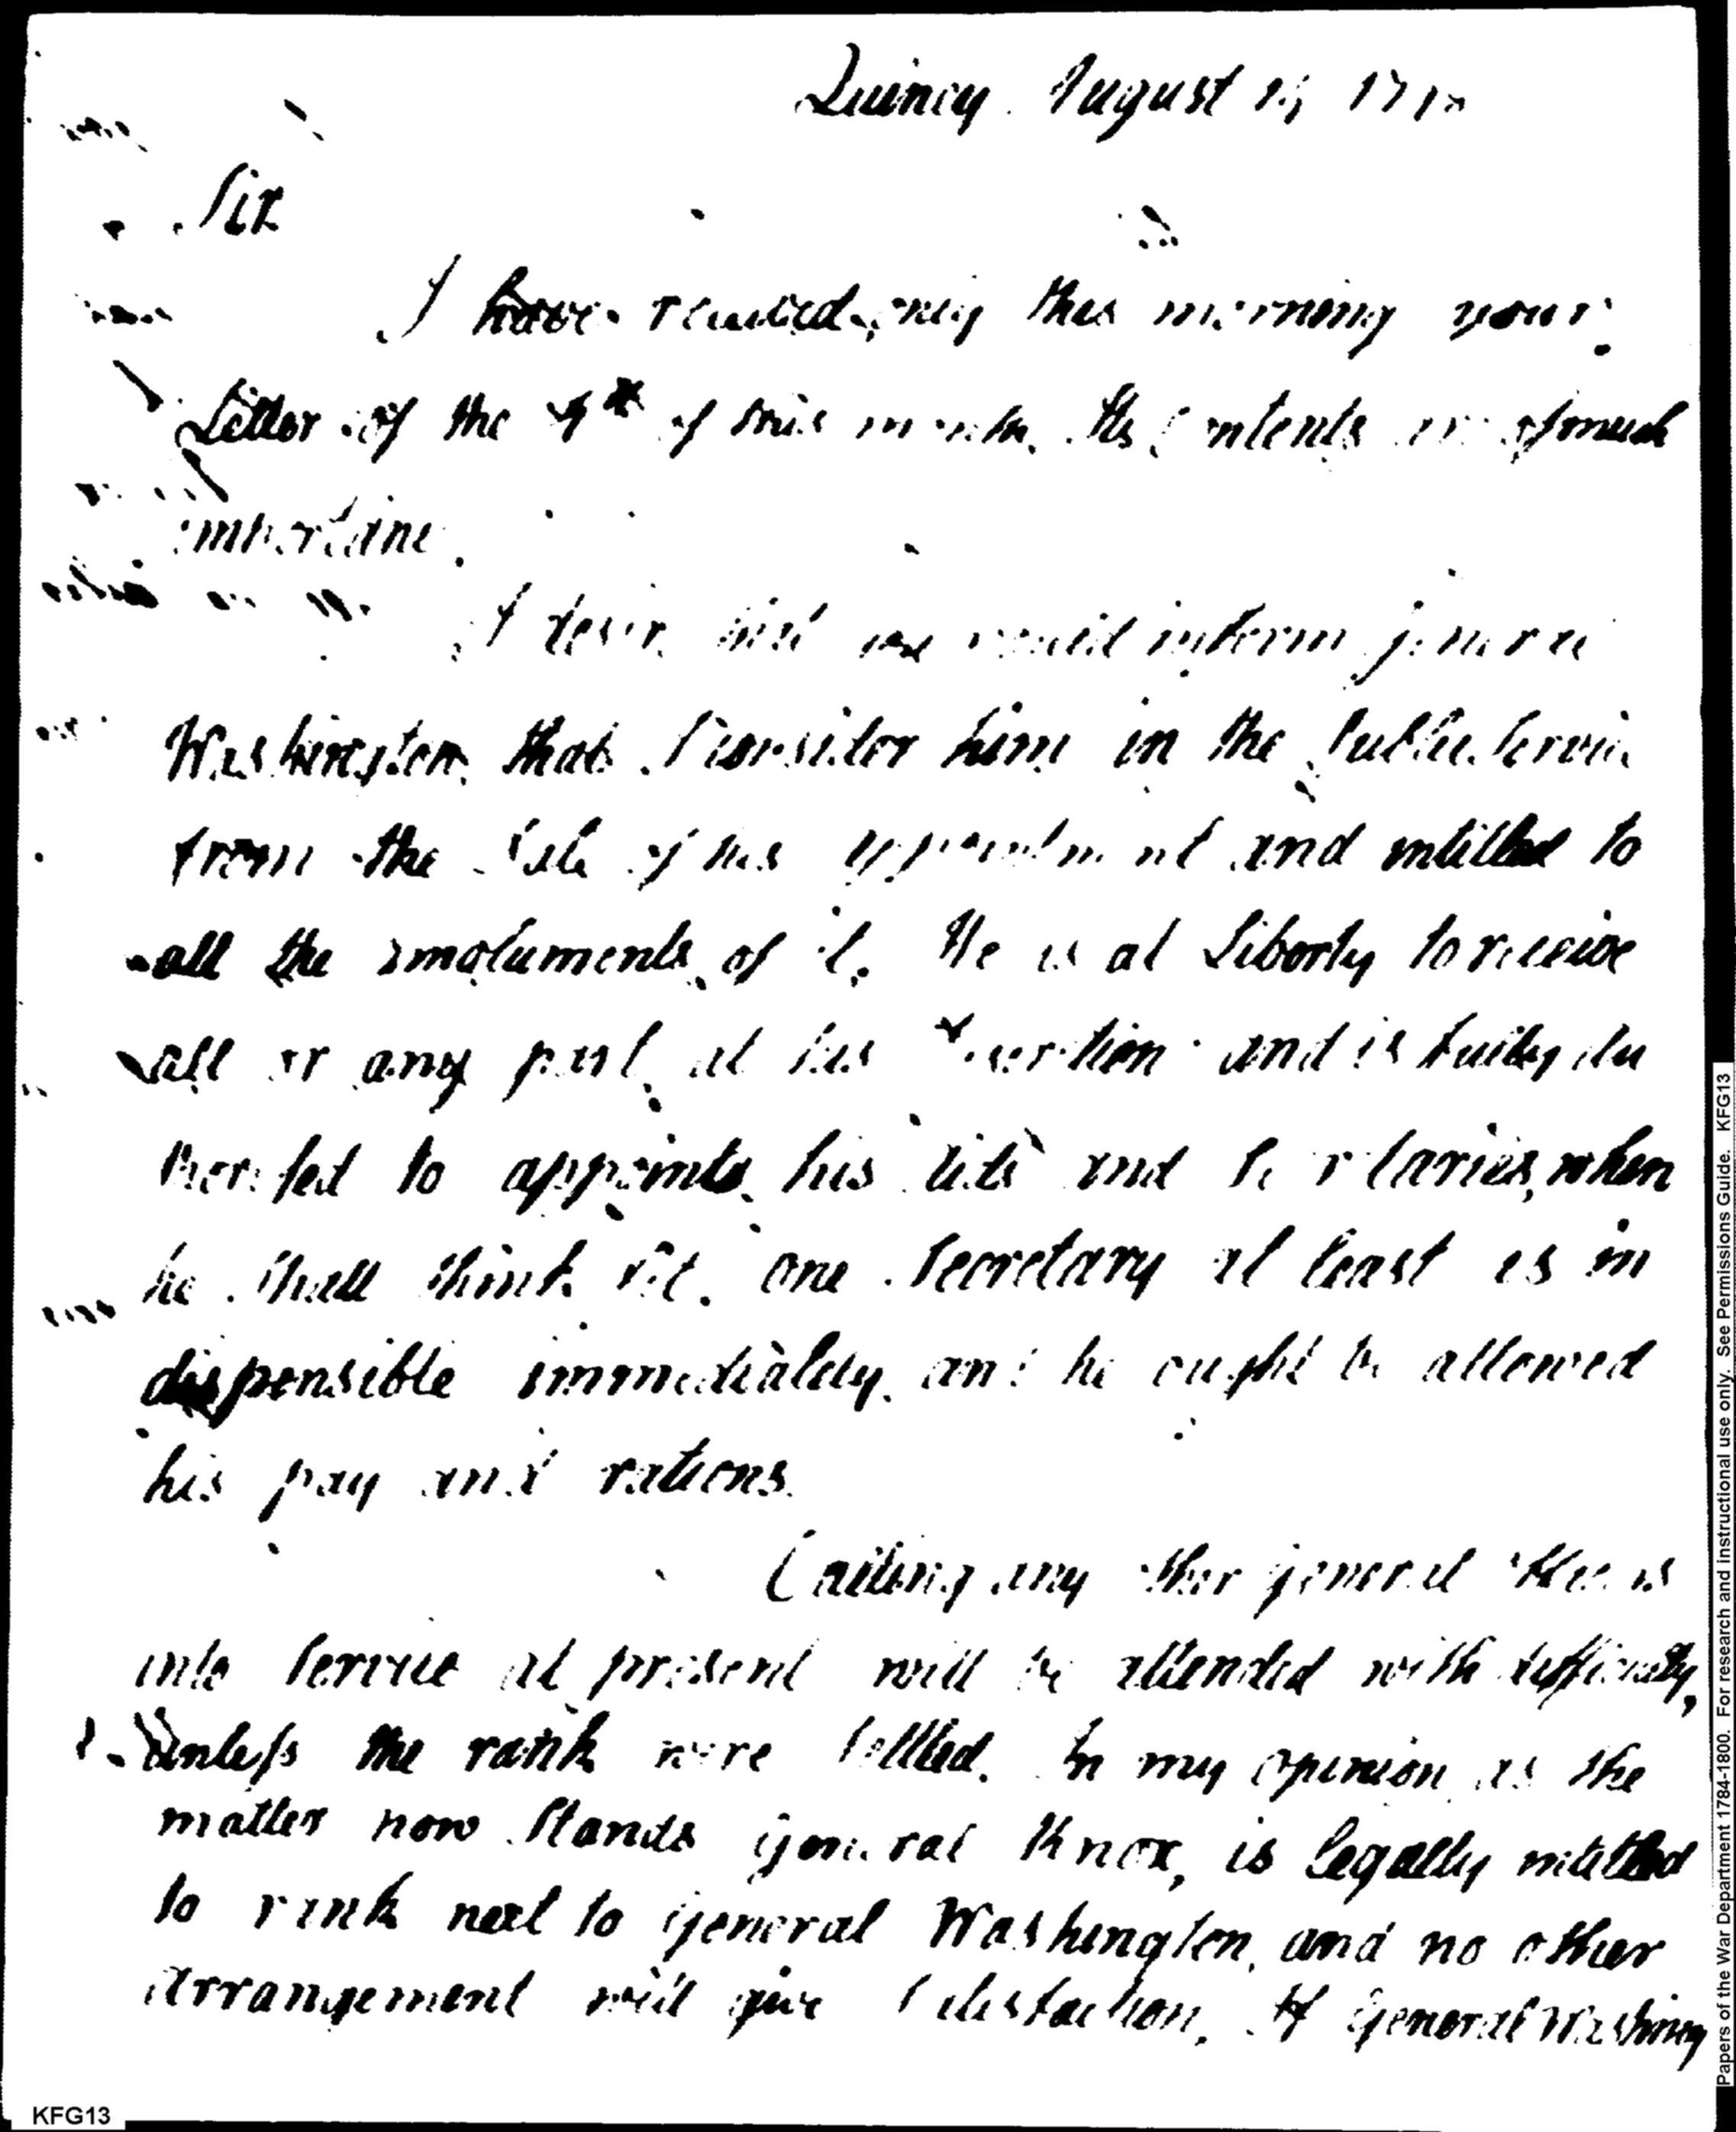 Quincy August 14 1798
Sir
I have received, only this morning your
Letter of the 4th of this month. Its Contents are of much
importance.
I desire that you would inform general
Washington that I consider him in the Public Service
from the date of his appointment and intitled to
all the emoluments of it. He is at Liberty to receive
all or any part at his discretion and is fully au
thorised to appoint his Aids and Secretaries, when
he shall think fit. One Secretary at least is in
dispensible immediately and he ought be allowed
his pay and rations.
Calling any other general officers
into Service at present will be attended with difficulty,
Unless the rank were settled. In my opinion as the
matter now Stands General Knox, is legally intitled
to rank next to General Washington, and no other
arrangement will give Satisfaction. If General Washing
KFG13
Papers of the War Department 1784-1800. For research and instructional use only. See Permissions Guide. KFG13